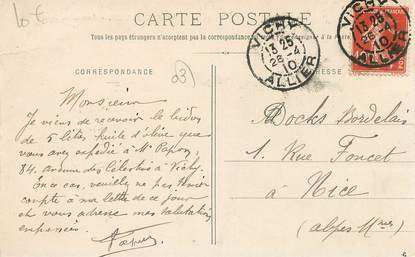 10 €
CARTE POSTALE
Tous les pays étrangers n'acceptent pas la correspondance
CORRESPONDANCE
ADRESSE
03
VICHY
13 25
28 -4
10
ALLIER
VICHY
13 25
28 -4
10
ALLIER
Monsieur
Je viens de recevoir le bidon
de 5 litres huile d'olive que
vous avez expédié à Mr Papon,
84, avenue des Célestins à Vichy.
En ce cas, veuillez ne pas tenir
compte à ma lettre de ce jour
et vous adresse mes salutations
empressées.
Docks Bordelais
1. Rue Foncet
à Nice
(alpes Mmes)